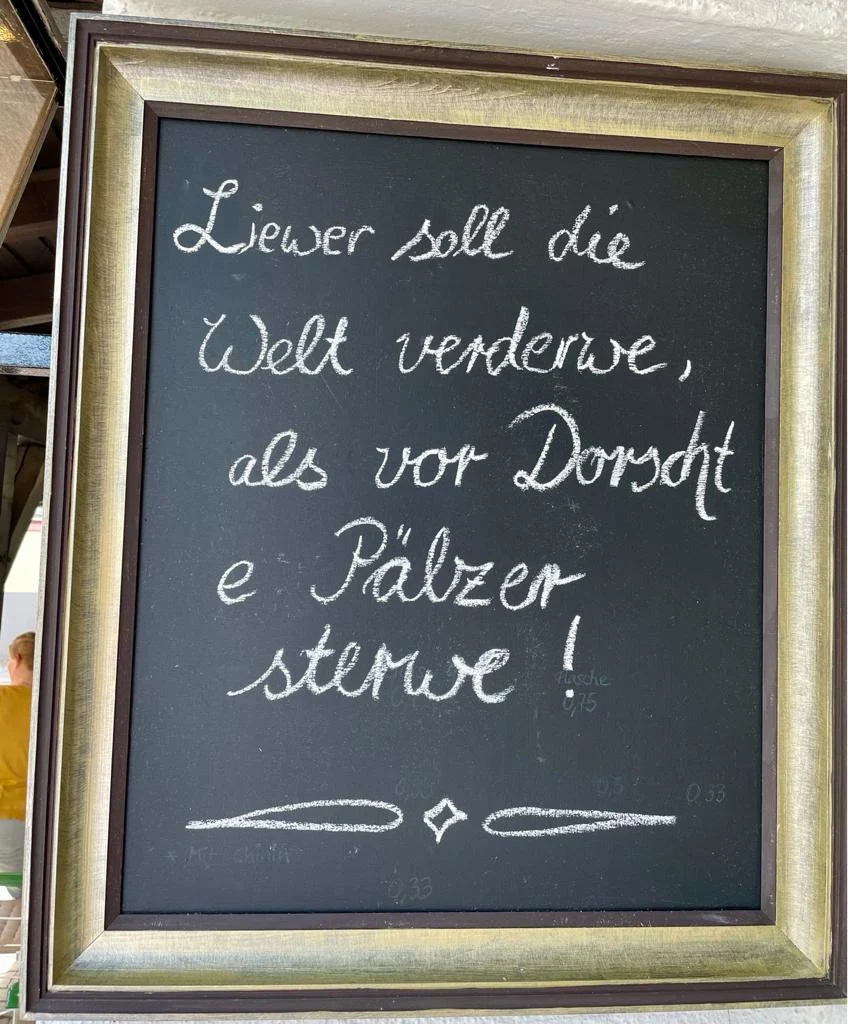 Liewer soll die
Welt verderwe,
als vor Dorscht
e Pälzer
sterwe !
Flasche
0,75
0,5 0,33
* Mit Chinin
0,33